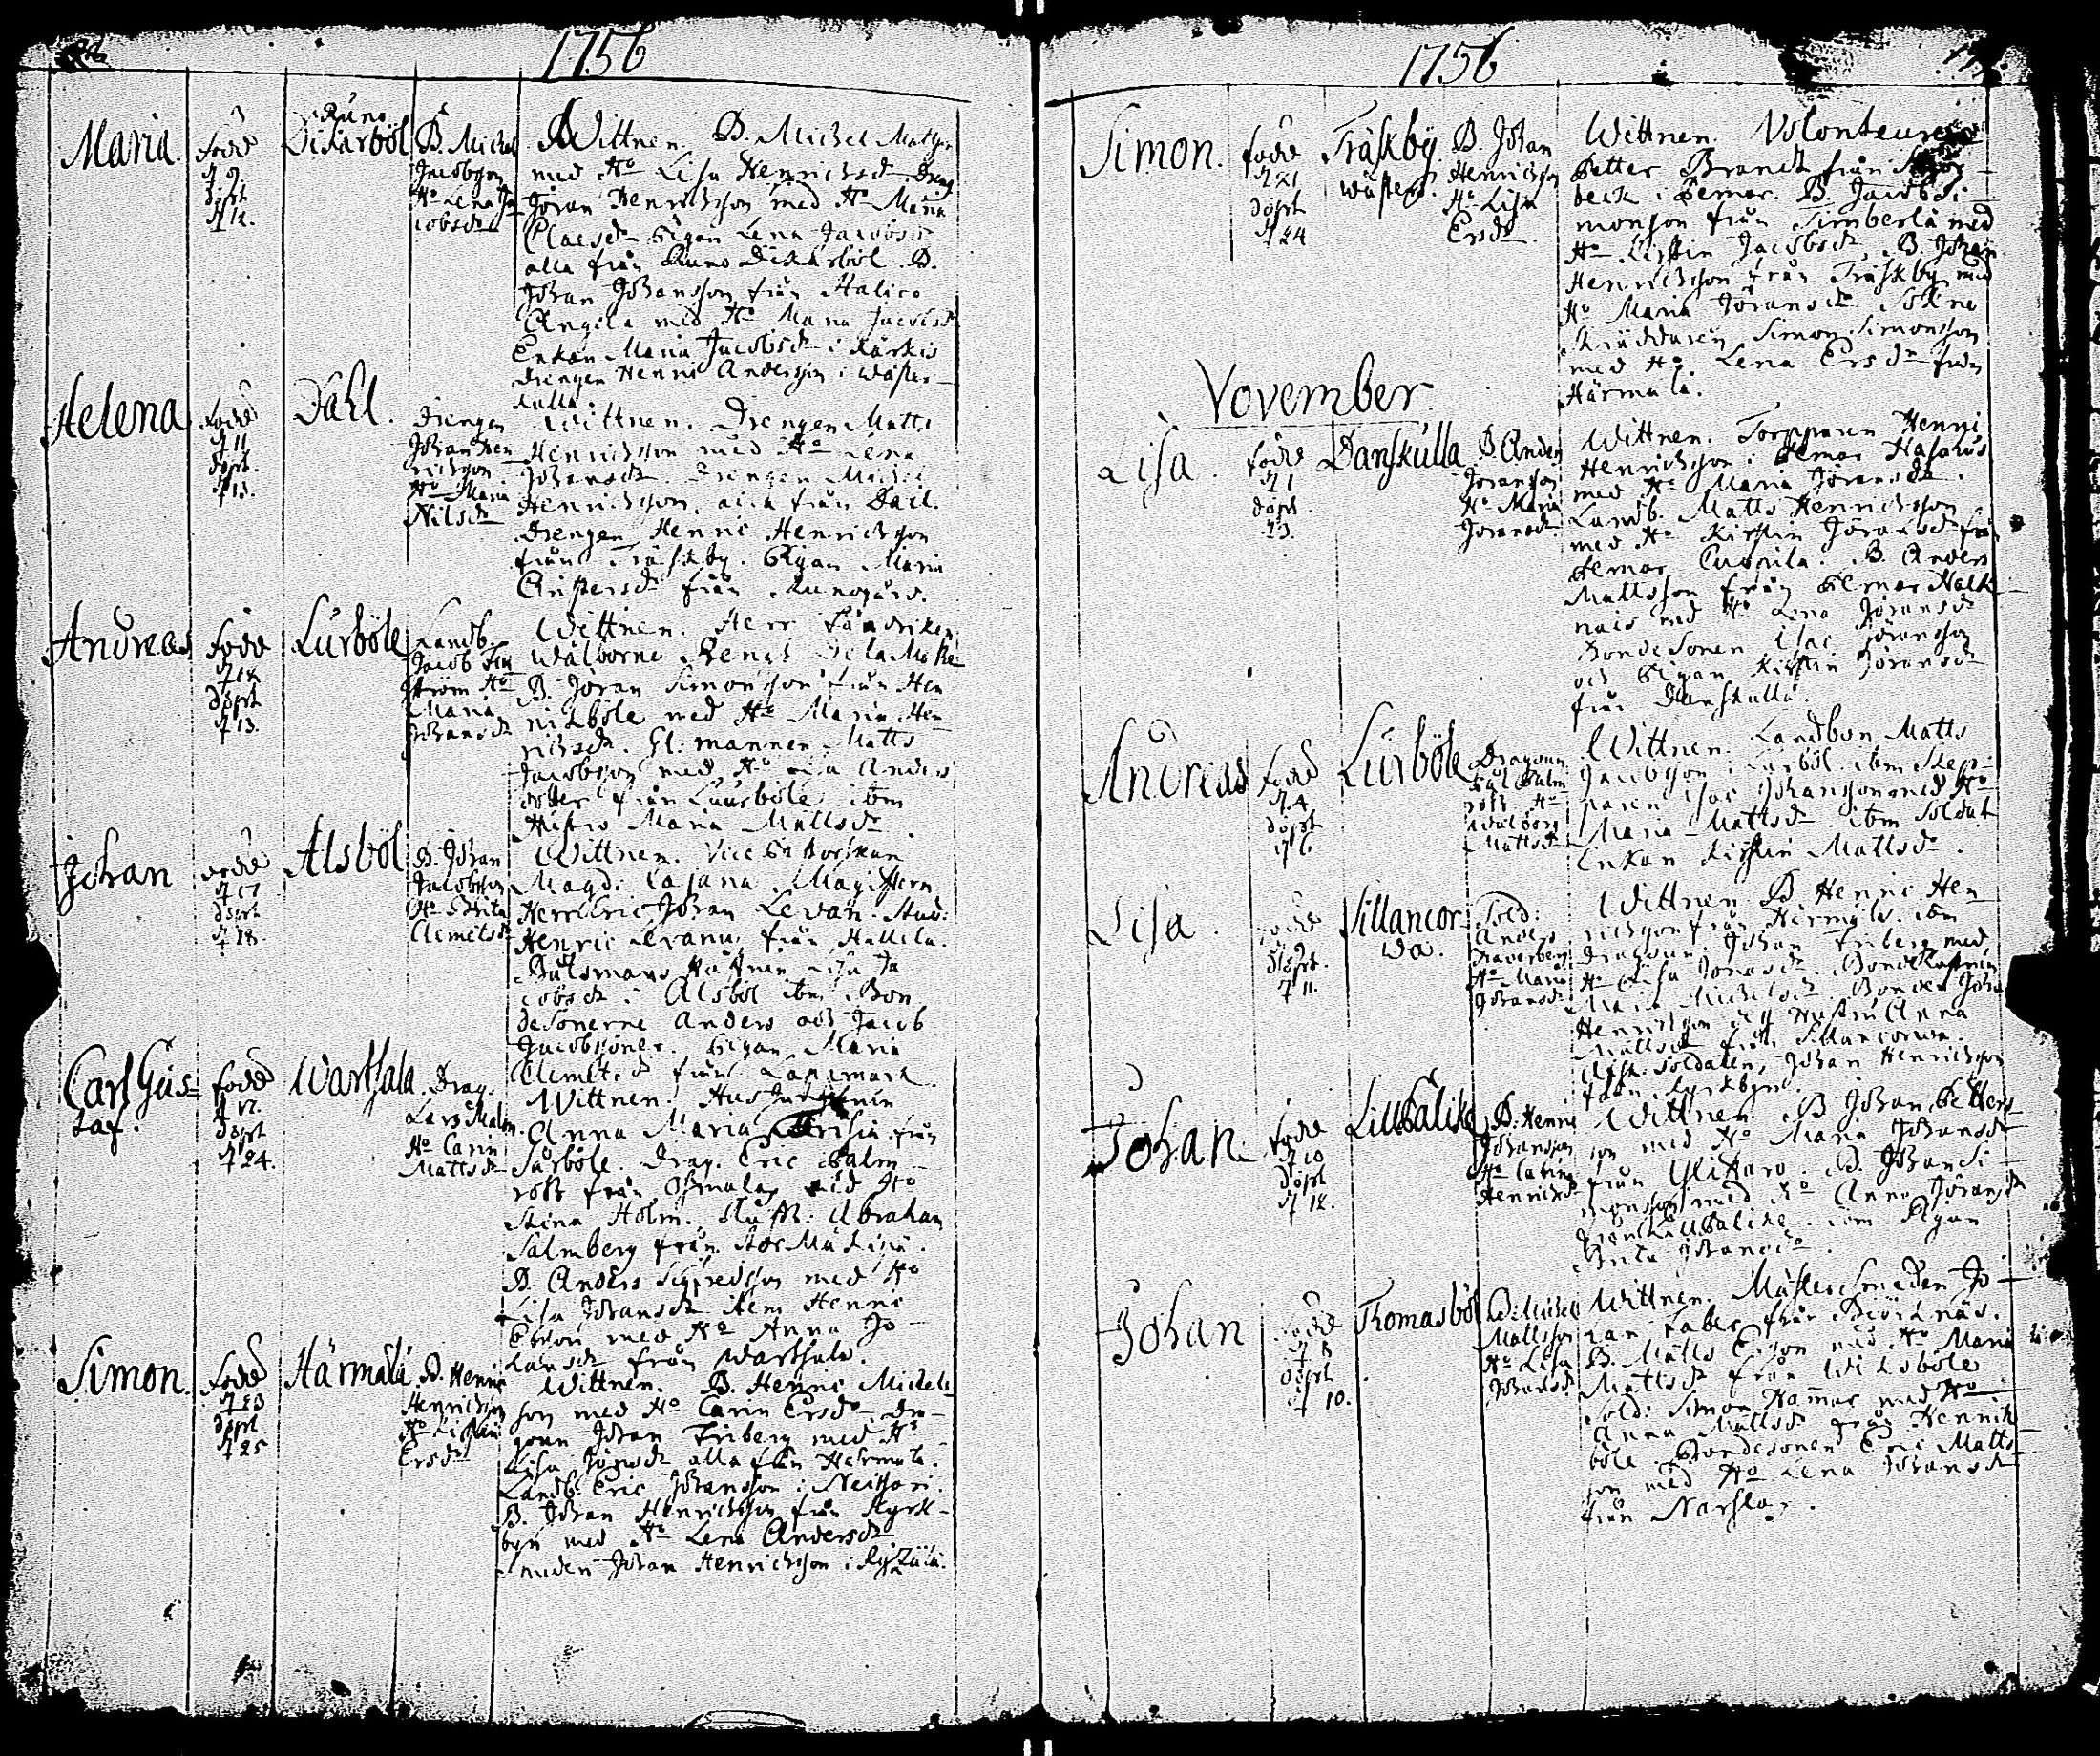 1756
Maria.
född
d 9.
döpt
d 12.
Runo
Dikarböl
B. Michel
Jacobsson
Ho Lena Ja
cobsdr
Wittnen. B. Michel Mattsson
med Ho Lisa Henricsdr Dreng
Jöran Henricsson med Ho Maria
Claesdr Pigan Lena Jacobsdr
alla från Runo Dikarböl. B.
Johan Johansson från Halico
Angela med Ho Maria Jacobsdr
Enkan Maria Jacobsdr i Kärkis
Drengen Henric Andersson i Wäster
kulla
Helena
född
d 11
döpt.
d 13.
Dahl.
Drengen
Johan Hen
ricsson
Ho Maria
Nilsdr
Wittnen. Drengen Matts
Henricsson med Ho Lena
Johansdr. Drengen Michel
Henricsson, alla från Dahl.
Drengen Henric Henricsson
från Träskby. Pigan Maria
från Runogård.
Andreas
född
d 12
döpt
d 13.
Lurböle
Landb.
Jacob
ström Ho
Maria
Johansdr
Wittnen. Herr Fändriken
Wälborne Bengt De la Motte
B. Jöran Simonsson från Hen
nicböle med Ho Maria Hen
ricsdr. Gl: mannen Matts
Jacobsson med Ho Lisa Anders
dotter från Luurböle, ibm
Hustro Maria Mattsdr
Johan
född
d 17
döpt
d 18.
Alsböl
B. Johan
Jacobsson
Ho Brita
Clemetsdr
Wittnen. Vice Pastorskan
Magd: Cajana. Magistern
Herr Eric Johan Levan. Stud:
Henric Levanus från Hallila.
Båtsmans Hustrun Lisa Ja
cobsdr i Alsböl ibm Bon
desönerne Anders och Jacob
Jacobssöner. Pigan Maria
Clemetsdr från Lapemark.
Carl Gus
taf.
född
d 17.
döpt
d 24.
Wartsala
Drag.
Lars Malm.
Ho Carin
Mattsdr
Wittnen. Hus
Anna Maria från
Särböle. Drag. Eric Palm
roth från Ossmalax med Ho
Stina Holm. Abraham
Salmberg från
B. Anders Sigfredsson med Ho
Lisa Johansdr item Henric
Ersson med Ho Anna Jo
hansdr från Wartsala.
Simon.
född
d 23
döpt
d 25
Härmälä
B. Henric
Henricsson
Ho Kirstin
Ersdr
Wittnen. B. Henric Michels
son med Ho Carin Ersdr Dra
goun Johan Friberg med Ho
Lisa Jönsdr alla från Härmälä.
Landb: Eric Johansson i
B. Johan Henricsson från Kyrk
byn med Ho Lena Andersdr
Johan Henricsson i
1756
Simon.
född
d 21
döpt
d 24
Träskby
wästerg.
B. Johan
Henricsson
Ho Lisa
Ersdr.
Wittnen. Volonteuren
Petter Brandt från
beck i Pemar. B. Jacob Si
monson från Timberla med
Ho Kirstin Jacobsdr. B. Johan
Henricsson från Träskby med
Ho Maria Jöransdr. Sokne
Skräddaren Simon Simonsson
med Ho. Lena Ersdr från
Härmälä.
November
Lisa.
född
d 1
döpt.
d 3.
Danskulla
B. Anders
Jöransson
Ho Maria
Jöransdr.
Wittnen. Torpparen Henric
Henricsson i Pemar
med Ho Maria Jöransdr.
Landb. Matts Henricsson
med Ho Kirstin Jöransdr från
Pemar B. Anders
Mattsson från Pemar
nais med Ho Lena Jöransdr
Bonde Sonen Isac Jöransson
och Pigan Kirstin Jöransdr
från Danskulla.
Andreas
född
d 4.
döpt
d 6.
Lurböle
Dragoun
Palm
roth Ho
Walborg
Mattsdr
Wittnen. Landbon Matts
Jacobsson i Lurböl. ibm Skep
paren Isac Johansson med Ho
Maria Mattsdr. ibm Soldat
Enkan Kirstin Mattsdr.
Lisa.
född
d 9
döpt.
d 11.
Sillancor
wa.
Sold:
Anders
Traverberg
Ho Maria
Johansdr
Wittnen. B. Henric Hen
ricsson från Härmälä. ibm
Dragoun Johan Friberg med
Ho Lisa Jönsdr. Bonde Hustrun
Maria Michelsdr. Bonden Johan
Henricsson och Hustru Anna
Mattsdr från Sillancorwa.
Afsk: soldaten Johan Henricsson
från Kyrkbyn.
Johan.
född
d 10
döpt
d 12.
LillPalike
B. Henric
Johansson
Ho Carin
Henricsdr
Wittnen. B. Johan Petters
son med Ho Maria Johansdr
från B. Johan Si
monsson med Ho Anna Jöransdr
från LillPalike. ibm Pigan
Brita Johansdr.
Johan
född
d 8
döpt
d 10.
Thomasböl
B. Michell
Mattsson
Ho Lisa
Johansdr
Wittnen. Mästersmeden Jo
han Faber från Biörknäs.
B. Matts Ersson med Ho Maria
Mattsdr från Wiksböle
Sold: Simon Hammar med Ho
Anna Mattsdr från Hennik
böle. Bondesonen Eric Matts
son med Ho Lena Johansdr
från Narsla.